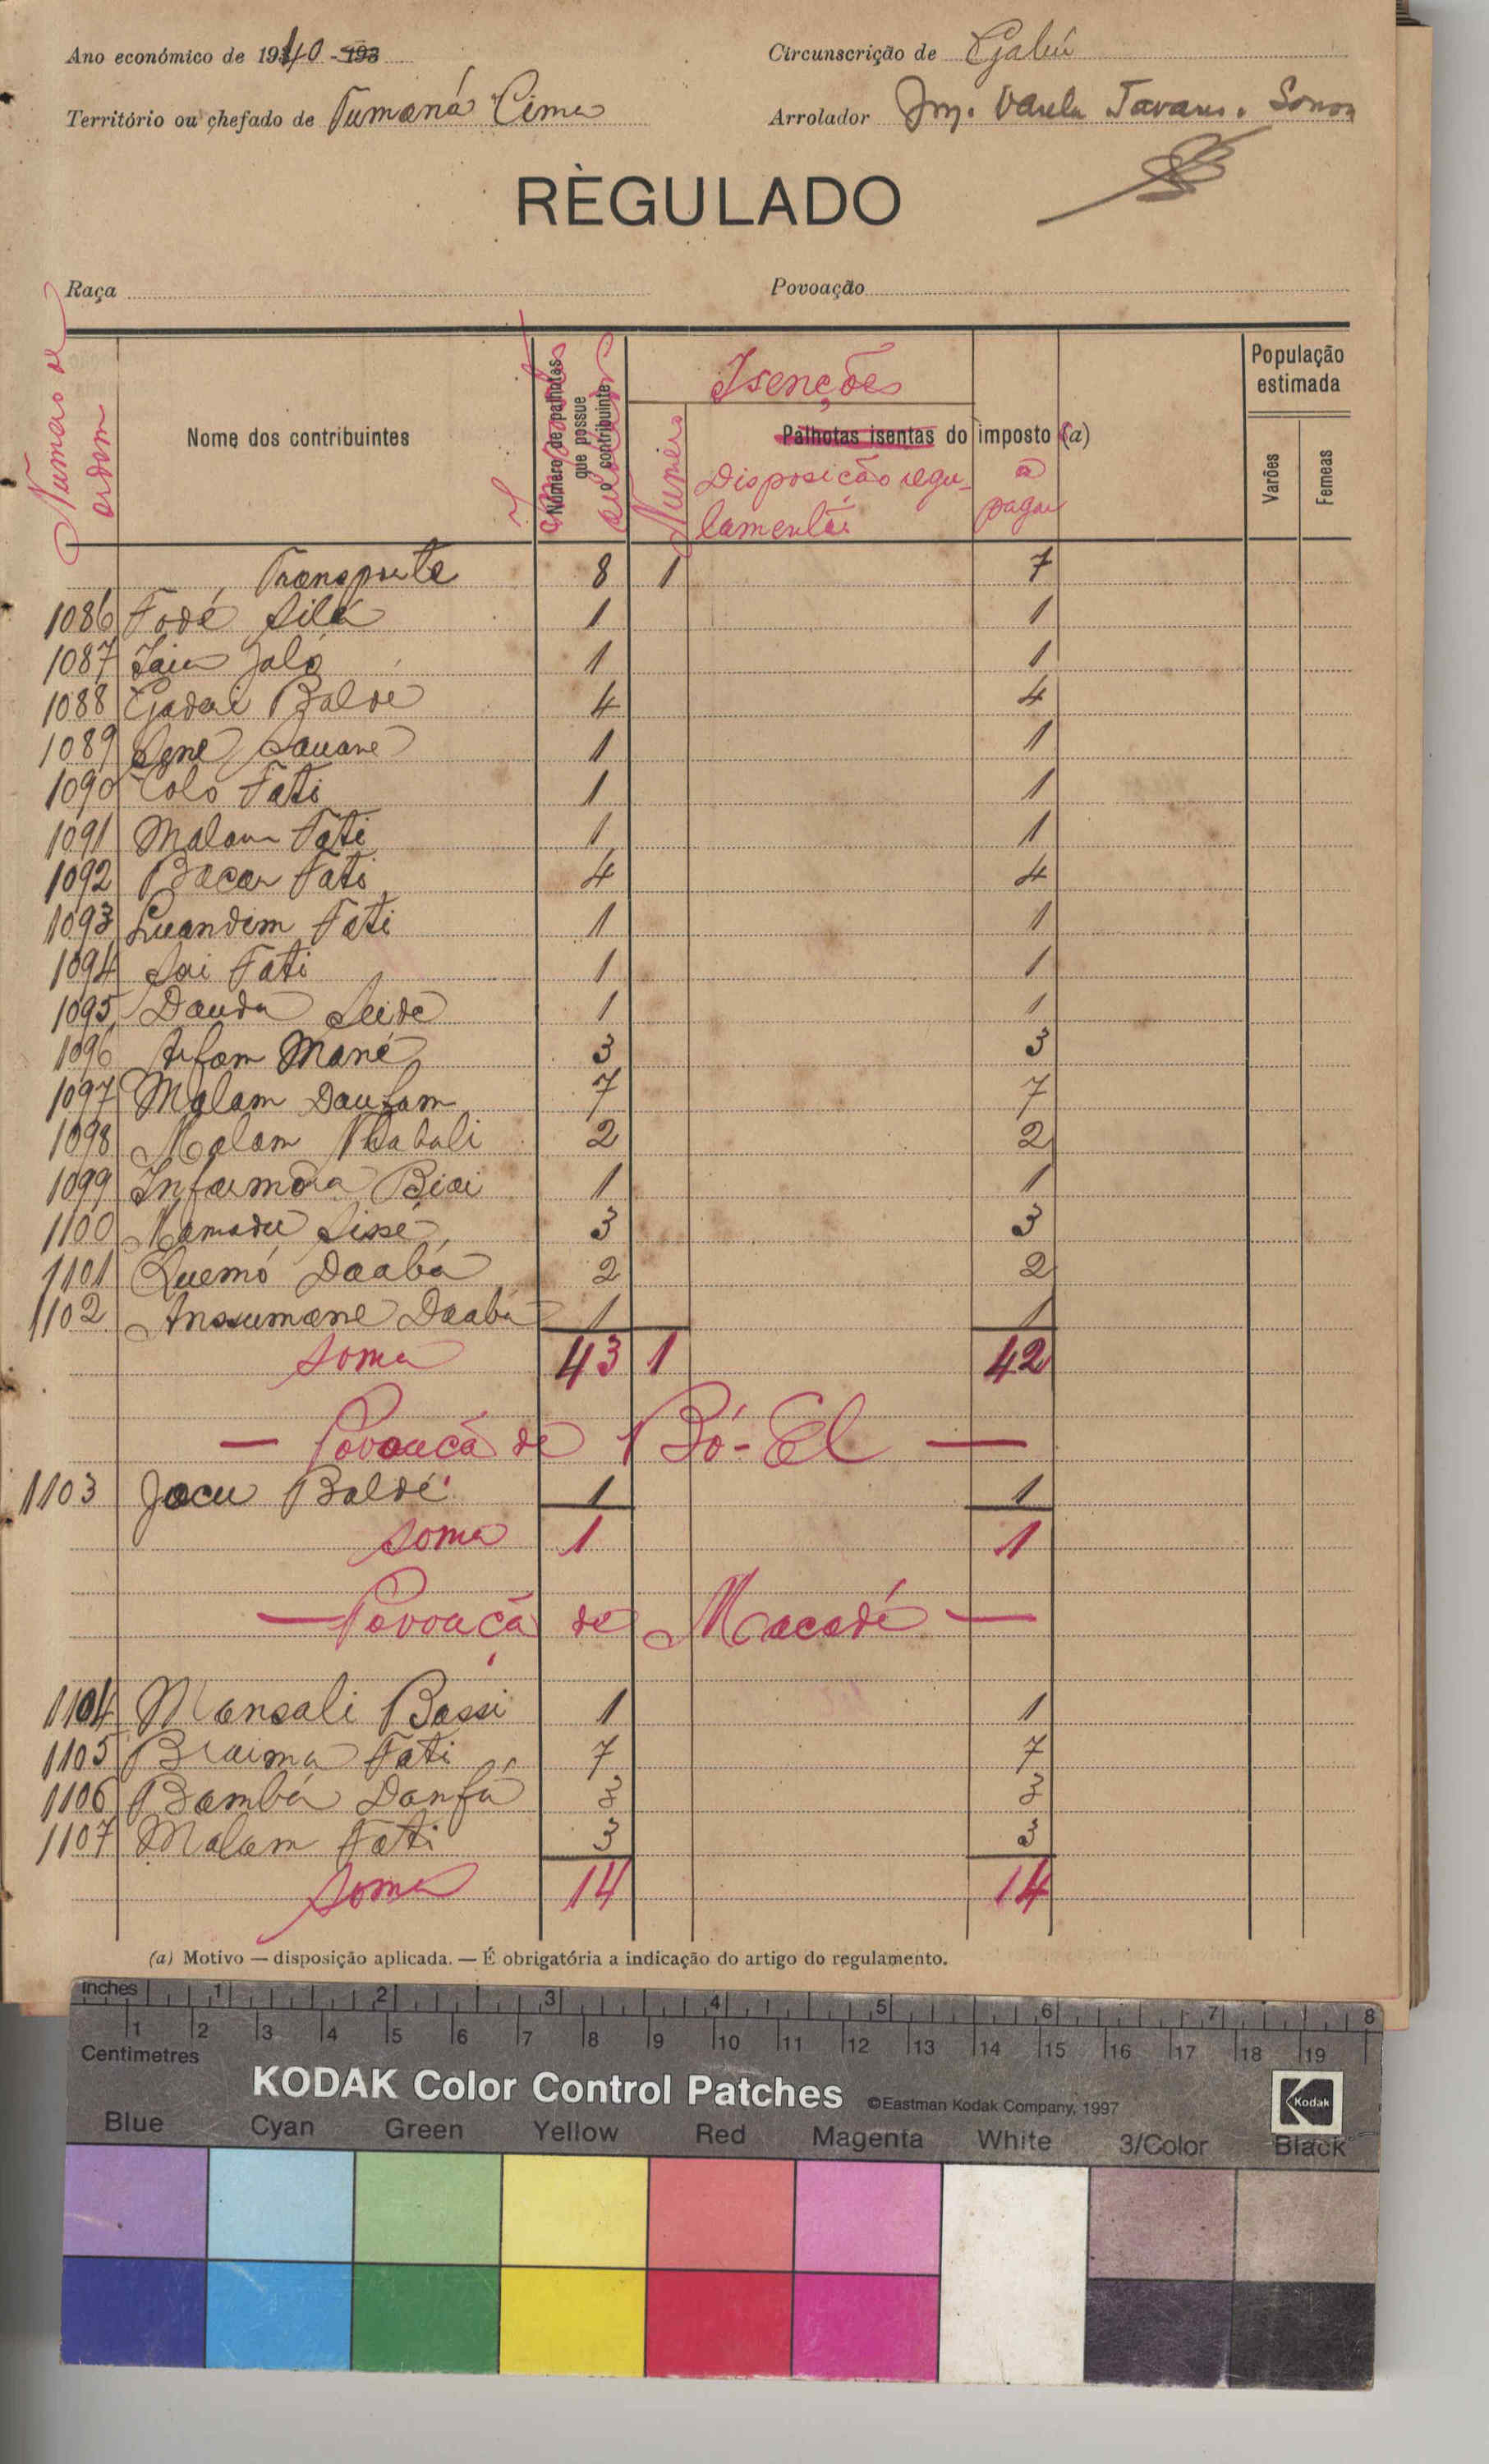 Ano económico de 1940 - 193
Circunscrição de Gabú
Território ou chefado de Tumaná Cima
Arrolador Tavares
RÈGULADO
Raça
Povoação
Numero de ordem
Nome dos contribuintes
Número de palhotas que possue o contribuinte
Isenções
Numero
Palhotas isentas do imposto (a)
Disposição regu-
lamentar
a pagar
População estimada
Varões
Femeas
Transporte 8 1 7
1086 Fodé Silá 1 1
1087 Jaló 1 1
1088 Gadari Baldé 4 4
1089 Sene Sauané 1 1
1090 Coló Fati 1 1
1091 Malam Fati 1 1
1092 Bacar Fati 4 4
1093 Luandim Fati 1 1
1094 Sai Fati 1 1
1095 Dauda Seidé 1 1
1096 Arfam Mané 3 3
1097 Malam Daufam 7 7
1098 Malam 2 2
1099 Infamora Biai 1 1
1100 Mamadu Sissé 3 3
1101 Quemó Daabá 2 2
1102 Anssumane Daabá 1 1
Soma 43 1 42
— Povoaçã de Bó-El —
1103 Jocu Baldé 1 1
Soma 1 1
— Povoaçã de Macadé —
1104 Mansali Bassi 1 1
1105 Braima Fati 7 7
1106 Bambá Danfá 3 3
1107 Malam Fati 3 3
Soma 14 14
(a) Motivo — disposição aplicada. — É obrigatória a indicação do artigo do regulamento.
inches 1 2 3 4 5 6 7 8
1 2 3 4 5 6 7 8 9 10 11 12 13 14 15 16 17 18 19
Centimetres
KODAK Color Control Patches ©Eastman Kodak Company, 1997 Kodak
Blue Cyan Green Yellow Red Magenta White 3/Color Black